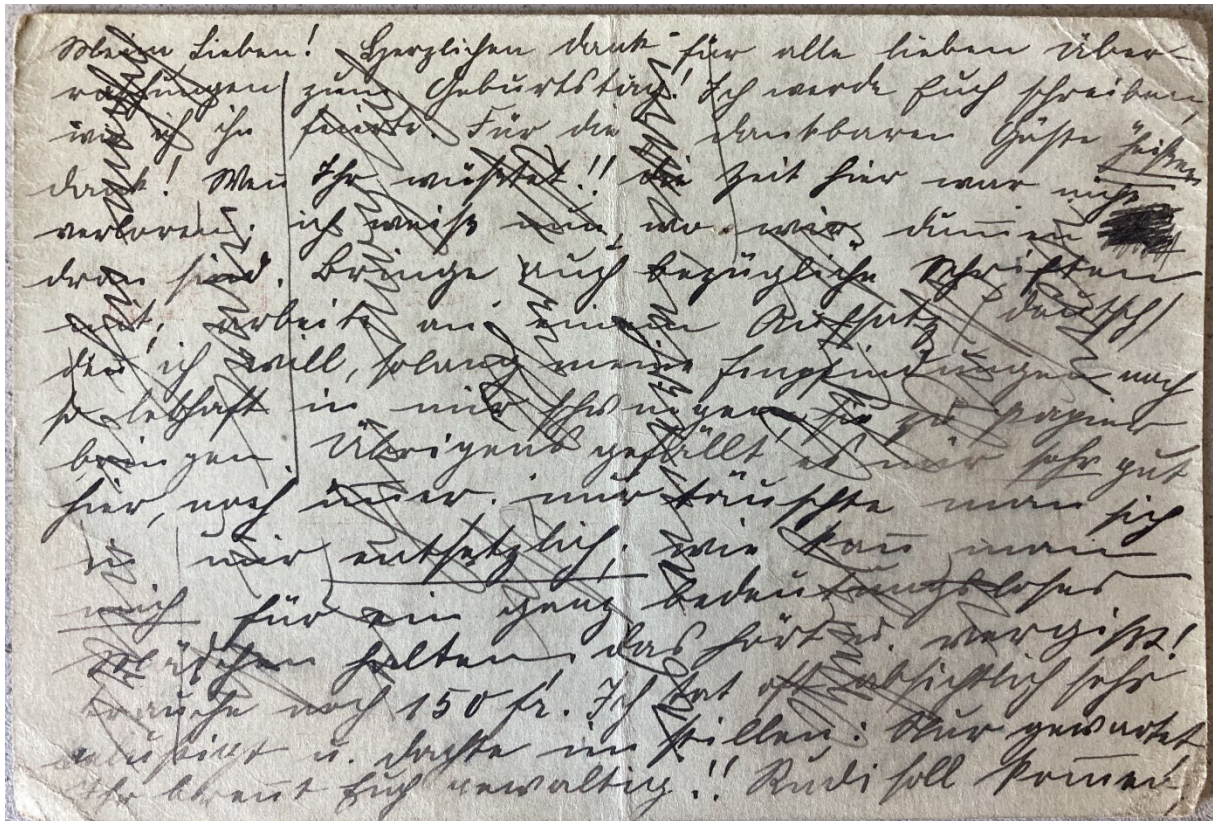 Meine Lieben! Herzlichen Dank für alle lieben Über-
raschungen zum Geburtstag! Ich werde Euch schreiben,
wie ich ihn feierte. Für die dankbaren Gäste heißen
Dank! Wen̄ Ihr wüßtet!! Die Zeit hier war nicht
verloren; ich weiß nun, wo wir dum̄en
dran sind. Bringe auch bezügliche Schriften
mit, arbeite an einem Aufsatz / deutsch /
den ich will, solang meine Empfindungen noch
so lebhaft in mir schwingen zu Papier
bringen. Übrigens gefällt es mir sehr gut
hier, noch im̄er. nur täuschte man sich
in mir entsetzlich, wie kan̄ man
mich für ein ganz bedeutungsloses
Mädchen halten, das hört u. vergißt!
brauche noch 150 fr. Ich tat oft absichtlich sehr
u. dachte im stillen: Nur gewartet
Ihr bren̄t Euch gewaltig!! Rudi soll kom̄en,